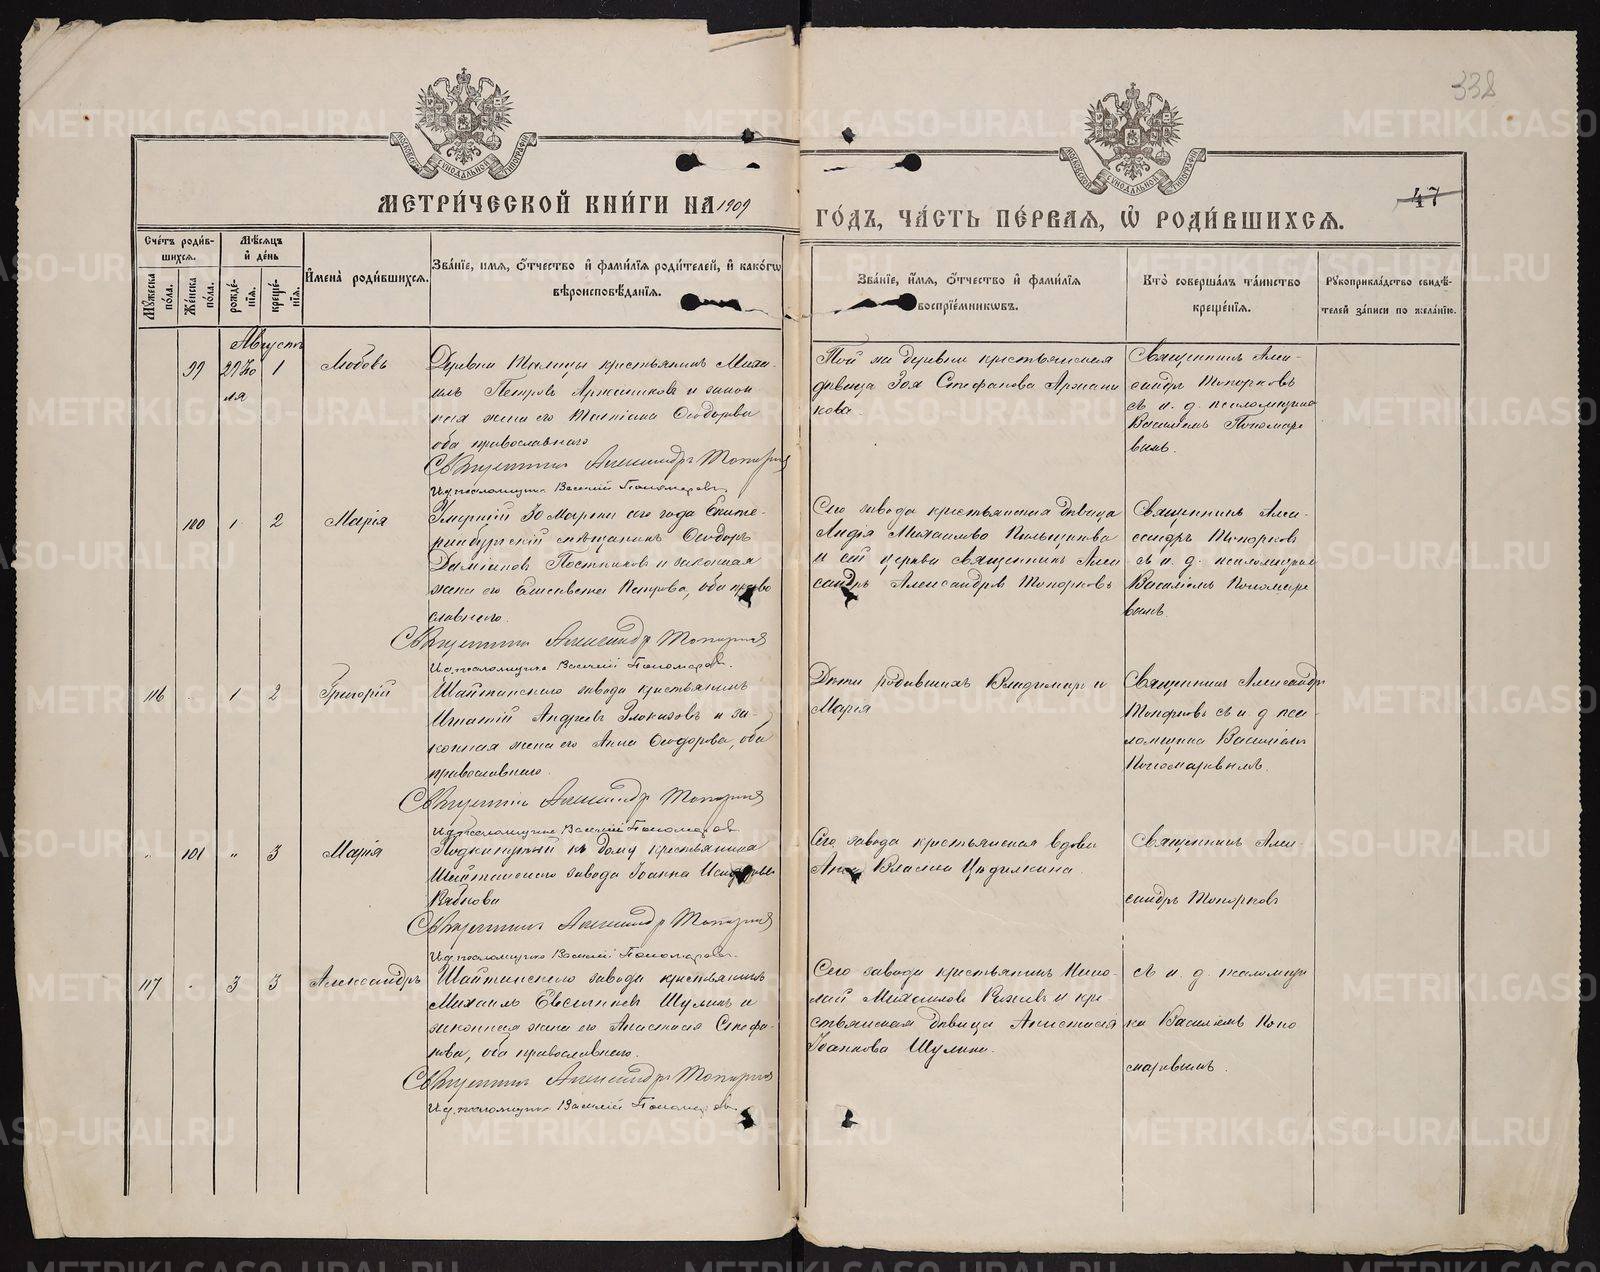 338
47
МОСКОВСКОЙ СѴНОДАЛЬНОЙ ТИПОГРАФІИ
МОСКОВСКОЙ СѴНОДАЛЬНОЙ ТИПОГРАФІИ
МЕТРИ́ЧЕСКОЙ КНИ́ГИ НА 1909
ГО́ДЪ, ЧА́СТЬ ПЕ́РВАЯ, Ѡ҆ РОДИ́ВШИХСЯ.
Сче́тъ роди́в-
шихся.
Мꙋ́жеска по́ла.
Же́нска по́ла.
Мѣ́сяцъ
и҆ де́нь
рожде́-
нїя.
креще́-
нїя.
И҆мена̀ роди́вшихся.
Зва́нїе, и҆мя, ѻ҆́тчество и҆ фами́лїя роди́телей, и҆ како́гѡ
вѣроисповѣ́данїя.
Зва́нїе, и҆́мя, ѻ҆́тчество и҆ фами́лїя
воспрїе́мникѡвъ.
Кто̀ соверша́лъ та́инство
креще́нїя.
Рꙋкоприкла́дство свидѣ́-
телей за́писи по жела́нїю.
Августъ
99 29 Ію
ля 1 Любовь
Деревни Талицы крестьянинъ Миха-
илъ Петровъ Аржанниковъ и закон
ная жена его Татіана Ѳеодорова
оба православнаго
Священникъ Александръ Топорковъ
И.д. псаломщика Василій Пономаревъ
Той же деревни крестьянская
дѣвица Зоя Стефанова Аржани
кова.
Священникъ Алек-
сандръ Топорковъ
съ и. д. псаломщика
Василіемъ Пономаре
вымъ.
100 1 2 Марія
Умершій 30 Марта сего года Екате-
ринбургскій мѣщанинъ Ѳеодоръ
Даміановъ Постниковъ и законная
жена его Елисавета Петрова, оба право
славнаго.
Священникъ Александръ Топорковъ
И.д. псаломщика Василій Пономаревъ.
Сего завода крестьянская дѣвица
Лидія Михаилова Пильщикова
и сей церкви священникъ Алек
сандръ Александровъ Топорковъ
Священникъ Алек-
сандръ Топорковъ
съ и. д. псаломщика
Василіемъ Пономаре
вымъ.
116 1 2 Григорій
Шайтанскаго завода крестьянинъ
Игнатій Андреевъ Злоказовъ и за-
конная жена его Анна Ѳеодорова, оба
православнаго.
Священникъ Александръ Топорковъ
И.д. псаломщика Василій Пономаревъ
Дѣти родившихъ Владимиръ и
Марія
Священникъ Александръ
Топорковъ съ и. д. пса-
ломщика Василіемъ
Пономаревымъ.
" 101 " 3 Марія
Подкинутый къ дому крестьянина
Шайтанскаго завода Іоанна Исидорова
Рябкова
Священникъ Александръ Топорковъ
И.д. псаломщика Василій Пономаревъ.
Сего завода крестьянская вдова
Анна Власова Цѣдилкина.
Священникъ Алек
сандръ Топорковъ
съ и. д. псаломщи
ка Василіемъ Поно
маревымъ.
117 3 3 Александръ
Шайтанскаго завода крестьянинъ
Михаилъ Евсигніевъ Шулинъ и
законная жена его Анастасія Стефа-
нова, оба православнаго.
Священникъ Александръ Топорковъ
И.д. псаломщика Василій Пономаревъ
Сего завода крестьянинъ Нико-
лай Михаиловъ и кре-
стьянская дѣвица Анастасія
Іоаннова Шулина.